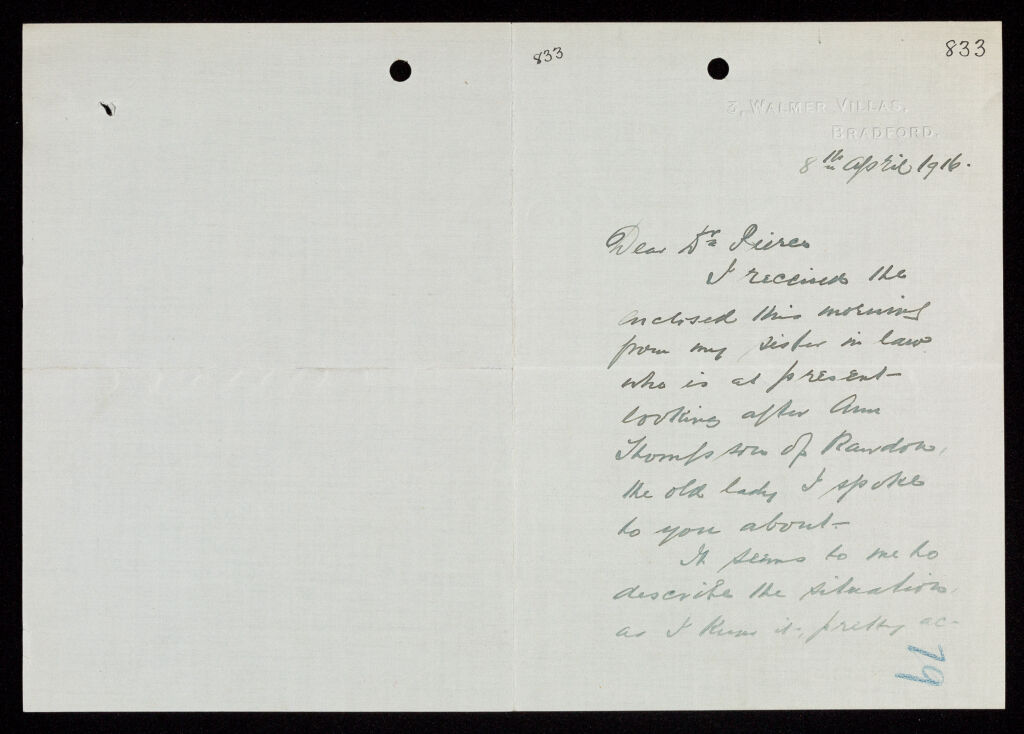 833
833
3, WALMER VILLAS,
BRADFORD.
8th April 1916.
Dear Dr Pierce
I received the
enclosed this morning
from my sister in law
who is at present
looking after Ann
Thompson of Rawdon,
the old lady I spoke
to you about-
It seems to me to
describe the situation,
as I know it, pretty ac-
79